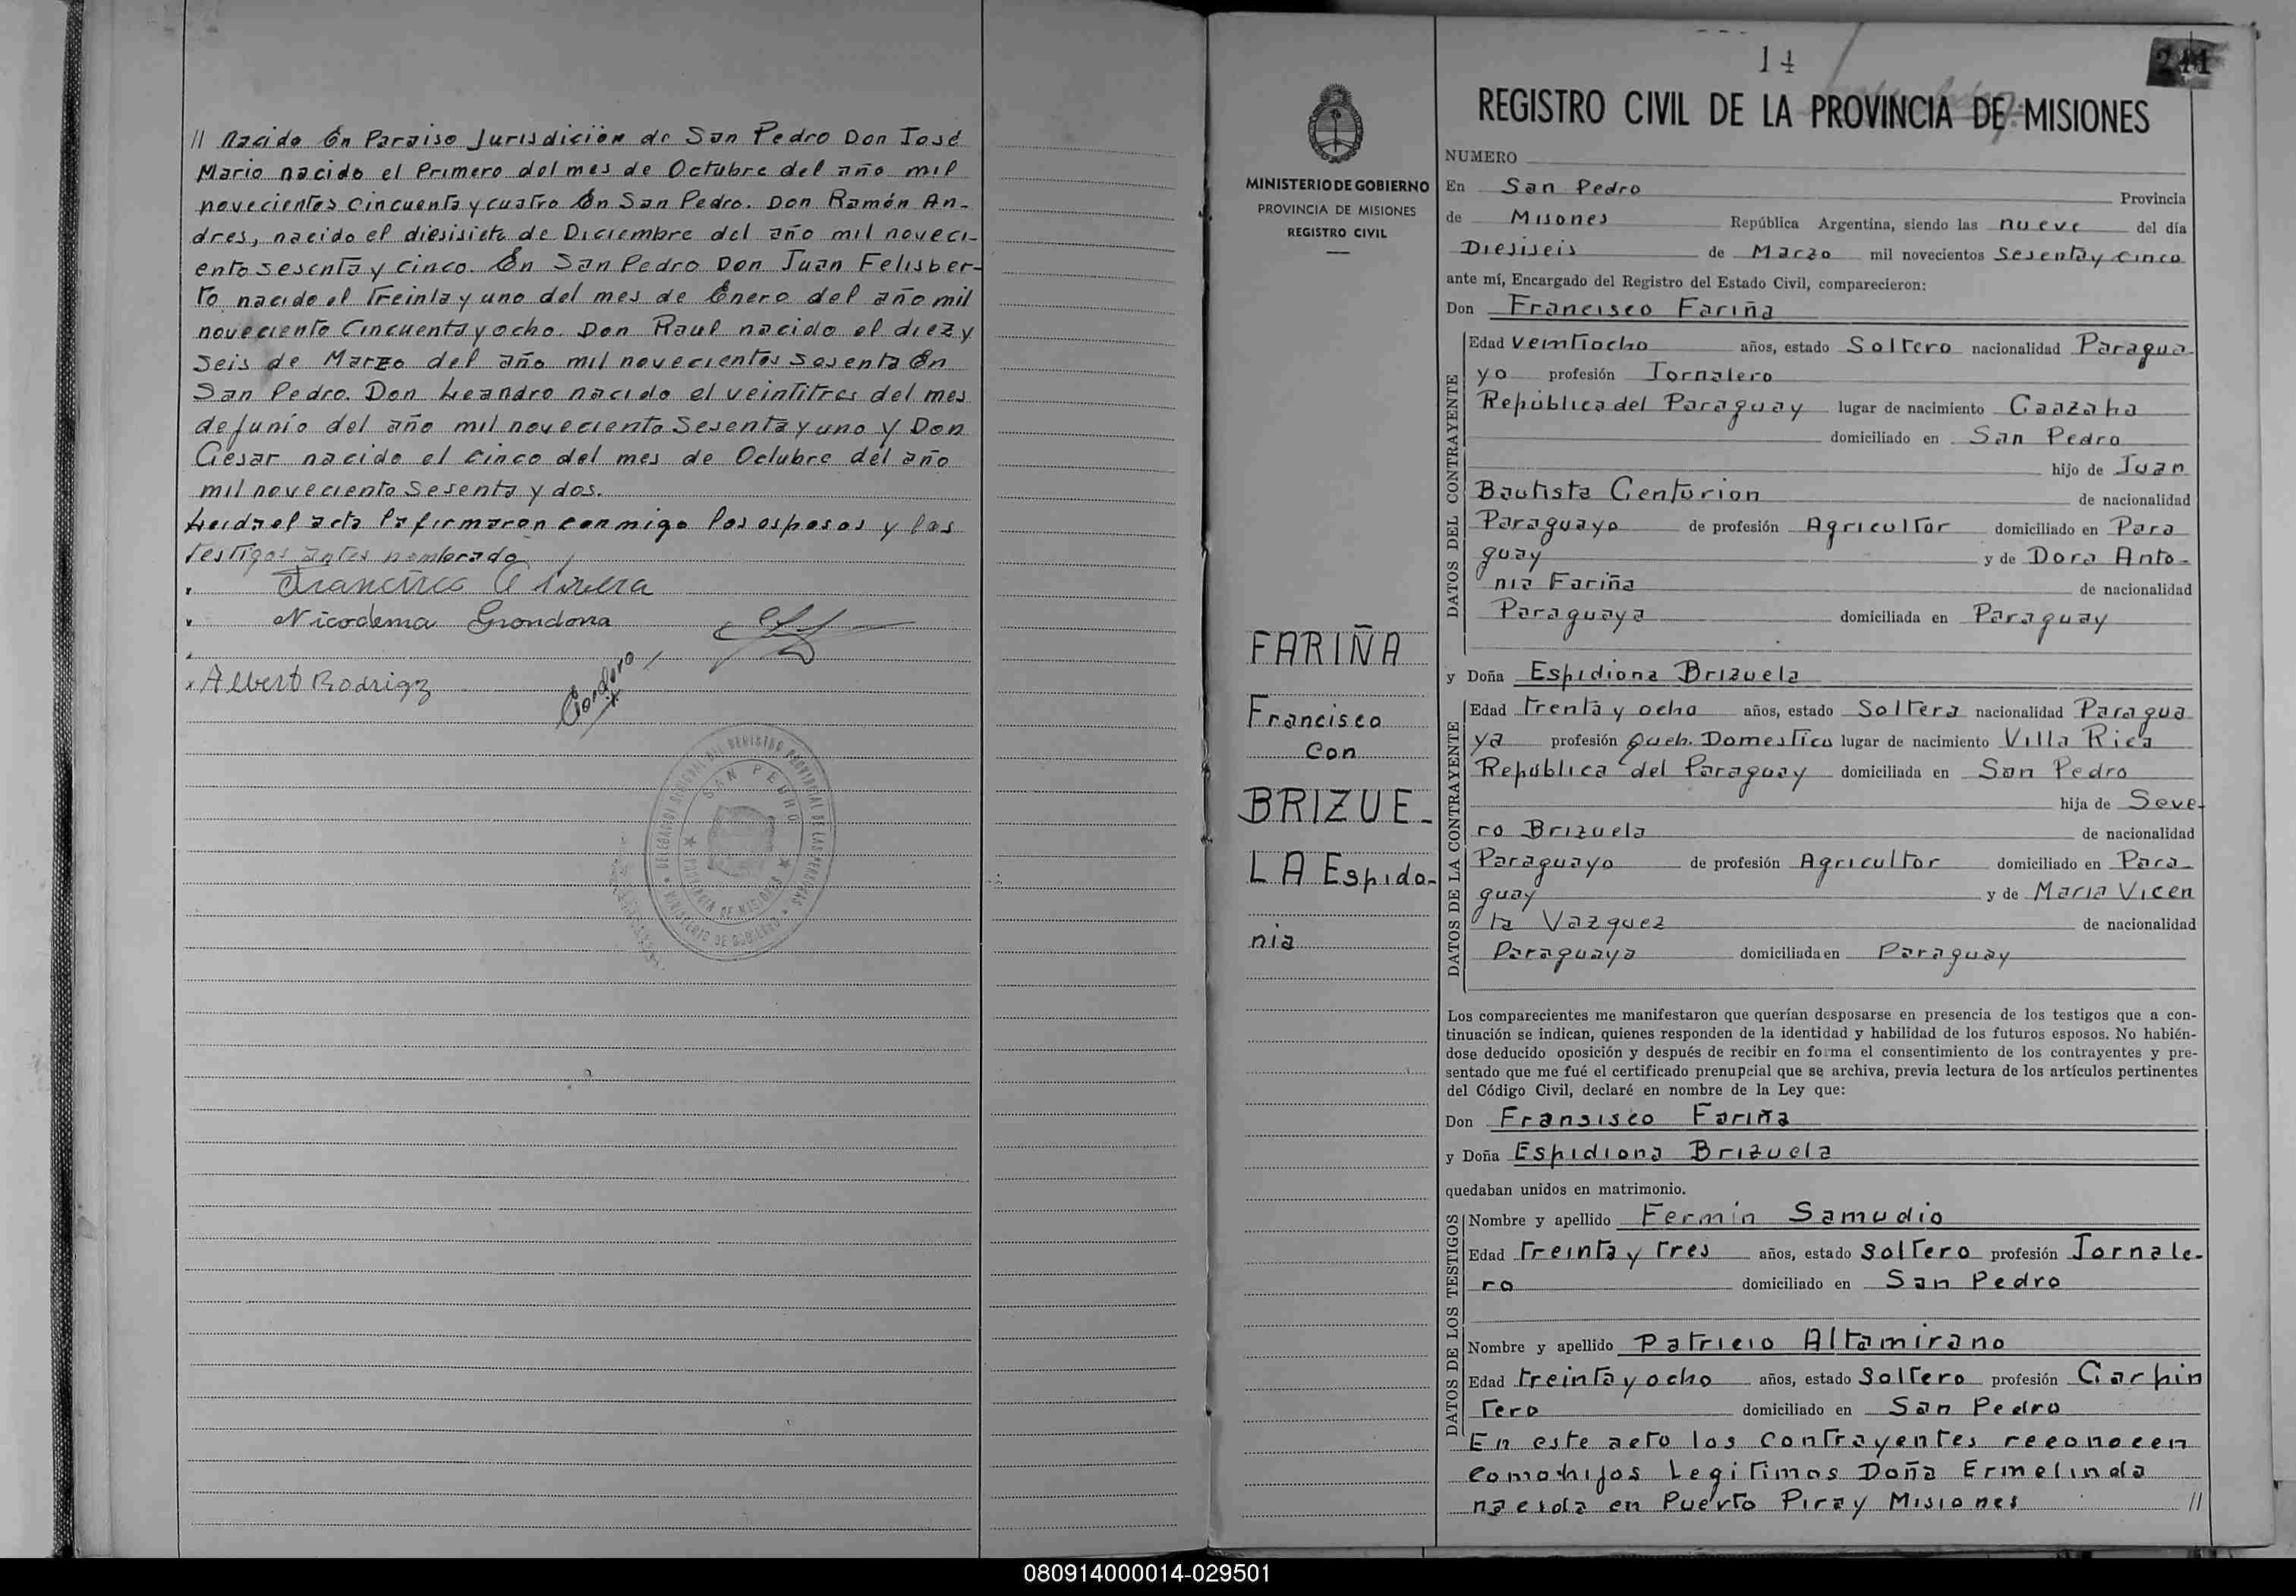 // Nacido En Paraiso Jurisdiciön de San Pedro Don José
Mario nacido el Primero del mes de Octubre del año mil
novecientos cincuenta y cuatro En San Pedro. Don Ramón An-
dres, nacido el diesisiete de Diciembre del año mil noveci-
ento sesenta y cinco. En San Pedro Don Juan Felisber-
to nacido el treinta y uno del mes de Enero del año mil
noveciento Cincuenta y ocho. Don Raul nacido el diez y
seis de Marzo del año mil novecientos sesenta En
San Pedro. Don Leandro nacido el veintitres del mes
de junio del año mil noveciento Sesenta y uno y Don
Cesar nacido el cinco del mes de Octubre del año
mil noveciento Sesenta y dos.
Leida el acta la firmaron conmigo los esposos y los
testigos antes nombrado
Francisco
Nicodema Grondona
Albert Rodrigz
Cordero
SAN PEDRO
PROVINCIA DE MISIONES
MINISTERIO DE GOBIERNO
14
241
REGISTRO CIVIL DE LA PROVINCIA DE MISIONES
MINISTERIO DE GOBIERNO
PROVINCIA DE MISIONES
REGISTRO CIVIL
FARIÑA
Francisco
con
BRIZUE-
LA Espido-
nia
NUMERO
En San Pedro Provincia
de Misones República Argentina, siendo las nueve del día
Diesiseis de Marzo mil novecientos Sesenta y cinco
ante mí, Encargado del Registro del Estado Civil, comparecieron:
Don Francisco Fariña
DATOS DEL CONTRAYENTE
Edad veintiocho años, estado Soltero nacionalidad Paragua-
yo profesión Jornalero
República del Paraguay lugar de nacimiento Caazaha
domiciliado en San Pedro
hijo de Juan
Bautista Centurion de nacionalidad
Paraguayo de profesión Agricultor domiciliado en Para
guay y de Dora Anto-
nia Fariña de nacionalidad
Paraguaya domiciliada en Paraguay
y Doña Espidiona Brizuela
DATOS DE LA CONTRAYENTE
Edad trenta y ocho años, estado Soltera nacionalidad Paragua
ya profesión Queh. Domestico lugar de nacimiento Villa Rica
República del Paraguay domiciliada en San Pedro
hija de Seve-
ro Brizuela de nacionalidad
Paraguayo de profesión Agricultor domiciliado en Para-
guay y de Maria Vicen
ta Vazquez de nacionalidad
Paraguaya domiciliada en Paraguay
Los comparecientes me manifestaron que querían desposarse en presencia de los testigos que a con-
tinuación se indican, quienes responden de la identidad y habilidad de los futuros esposos. No habién-
dose deducido oposición y después de recibir en forma el consentimiento de los contrayentes y pre-
sentado que me fué el certificado prenupcial que se archiva, previa lectura de los artículos pertinentes
del Código Civil, declaré en nombre de la Ley que:
Don Fransisco Fariña
y Doña Espidiona Brizuela
quedaban unidos en matrimonio.
DATOS DE LOS TESTIGOS
Nombre y apellido Fermin Samudio
Edad treinta y tres años, estado soltero profesión Jornale-
ro domiciliado en San Pedro
Nombre y apellido Patricio Altamirano
Edad treinta y ocho años, estado Soltero profesión Carpin
tero domiciliado en San Pedro
En este acto los contrayentes reconocen
como hijos Legitimos Doña Ermelinda
nacida en Puerto Piray Misiones //
080914000014-029501